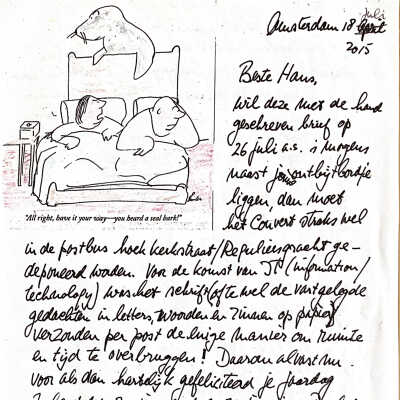 Amsterdam 18 Juli
2015
Beste Hans,
wil deze met de hand
geschreven brief op
26 juli a.s. 's morgens
naast jouw ontbijtbordje
liggen, dan moet
het Couvert straks wel
"All right, have it your way—you heard a seal bark!"
in de postbus hoek Kerkstraat/Reguliersgracht ge-
deponeerd worden. Voor de komst van IT (information/
technology) was het schrift ofte wel de vastgelegde
gedachten in letters, woorden en zinnen op papier
verzonden per post de enige manier om ruimte
en tijd te overbruggen! Daarom alvast nu
voor als dan hartelijk gefeliciteerd je jaardag